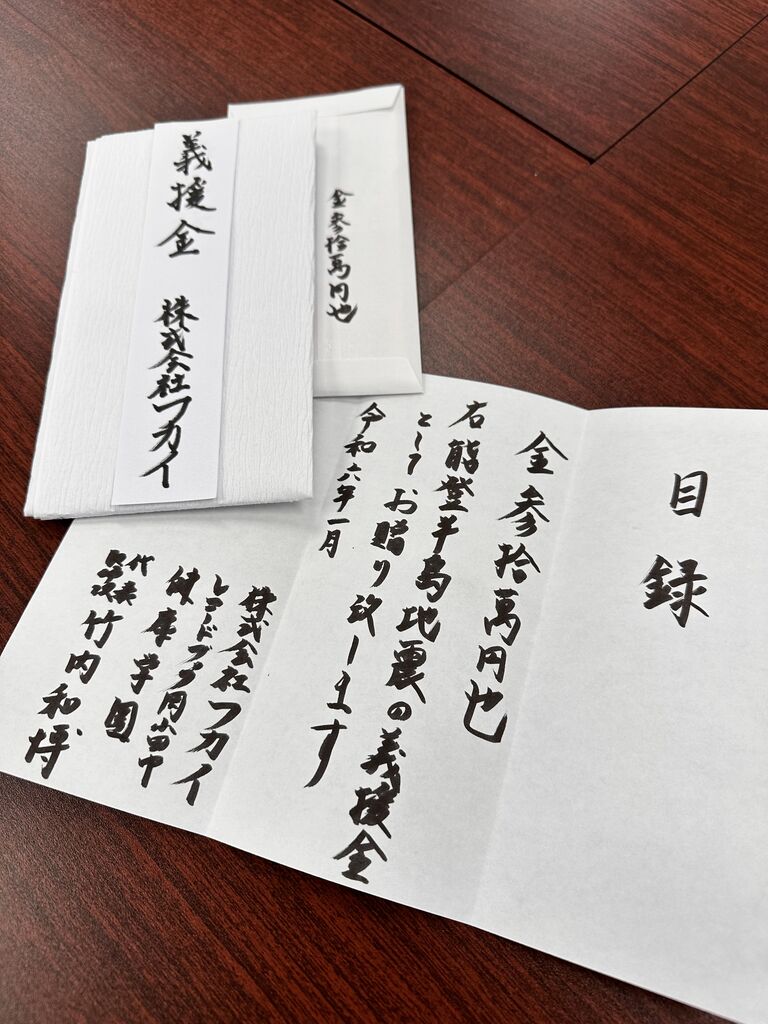 義援金 株式会社フカイ
金参拾萬円也
目録
金参拾萬円也
右能登半島地震の義援金
としてお贈り致します
令和六年一月
株式会社フカイ
レコードブック用小田中
健康学園
代表
竹内和博